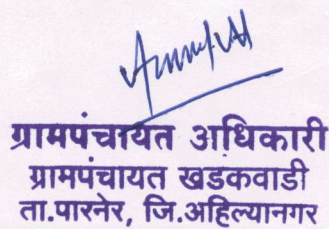 ग्रामपंचायत अधिकारी
ग्रामपंचायत खडकवाडी
ता.पारनेर, जि.अहिल्यानगर